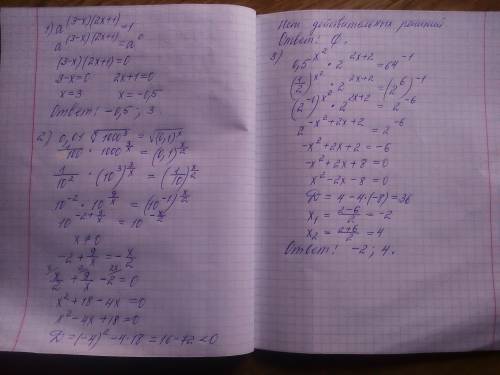 1) a^((3-x)(2x+1)) = 1
a^((3-x)(2x+1)) = a^0
(3-x)(2x+1)=0
3-x=0 2x+1=0
x=3 x=-0,5
Ответ: -0,5; 3.
2) 0,01 ∜(1000³) = √((0,1)ˣ)
1/100 · 1000^(3/x) = (0,1)^(x/2)
1/10² · (10³)^(3/x) = (1/10)^(x/2)
10^(-2) · 10^(9/x) = (10^(-1))^(x/2)
10^(-2+9/x) = 10^(-x/2)
x≠0
-2+9/x = -x/2
x/2 + 9/x - 2 = 0
x²+18-4x=0
x²-4x+18=0
D=(-4)²-4·18=16-72<0
Нет действительных решений
Ответ: ∅.
3) 0,5^(x²) · 2^(2x+2) = 64^(-1)
(1/2)^(x²) · 2^(2x+2) = (2^6)^(-1)
(2^(-1))^(x²) · 2^(2x+2) = 2^(-6)
2^(-x²+2x+2) = 2^(-6)
-x²+2x+2=-6
-x²+2x+8=0
x²-2x-8=0
D=4-4·(-8)=36
x₁=(2-6)/2=-2
x₂=(2+6)/2=4
Ответ: -2; 4.